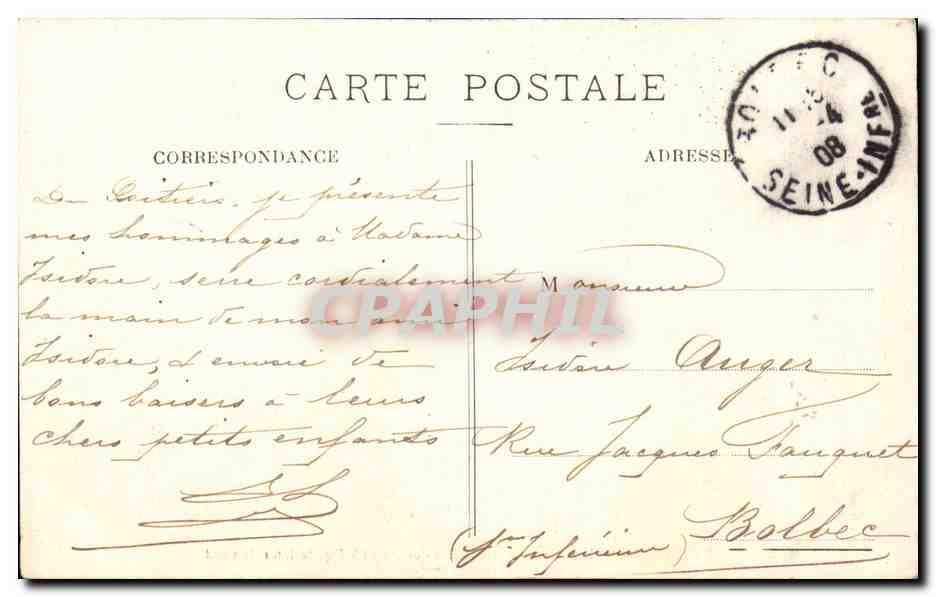 CARTE POSTALE
CORRESPONDANCE
De Poitiers, je présente
mes hommages à Madame
Isidore, serre cordialement
la main de mon ami
Isidore, & envoie de
bons baisers à leurs
chers petits enfants
ADRESSE
Monsieur
Isidore Auger
Rue Jacques Fauquet
Bolbec
(Sne Inférieure)
BOLBEC
08
SEINE-INFRE
CPAPHIL